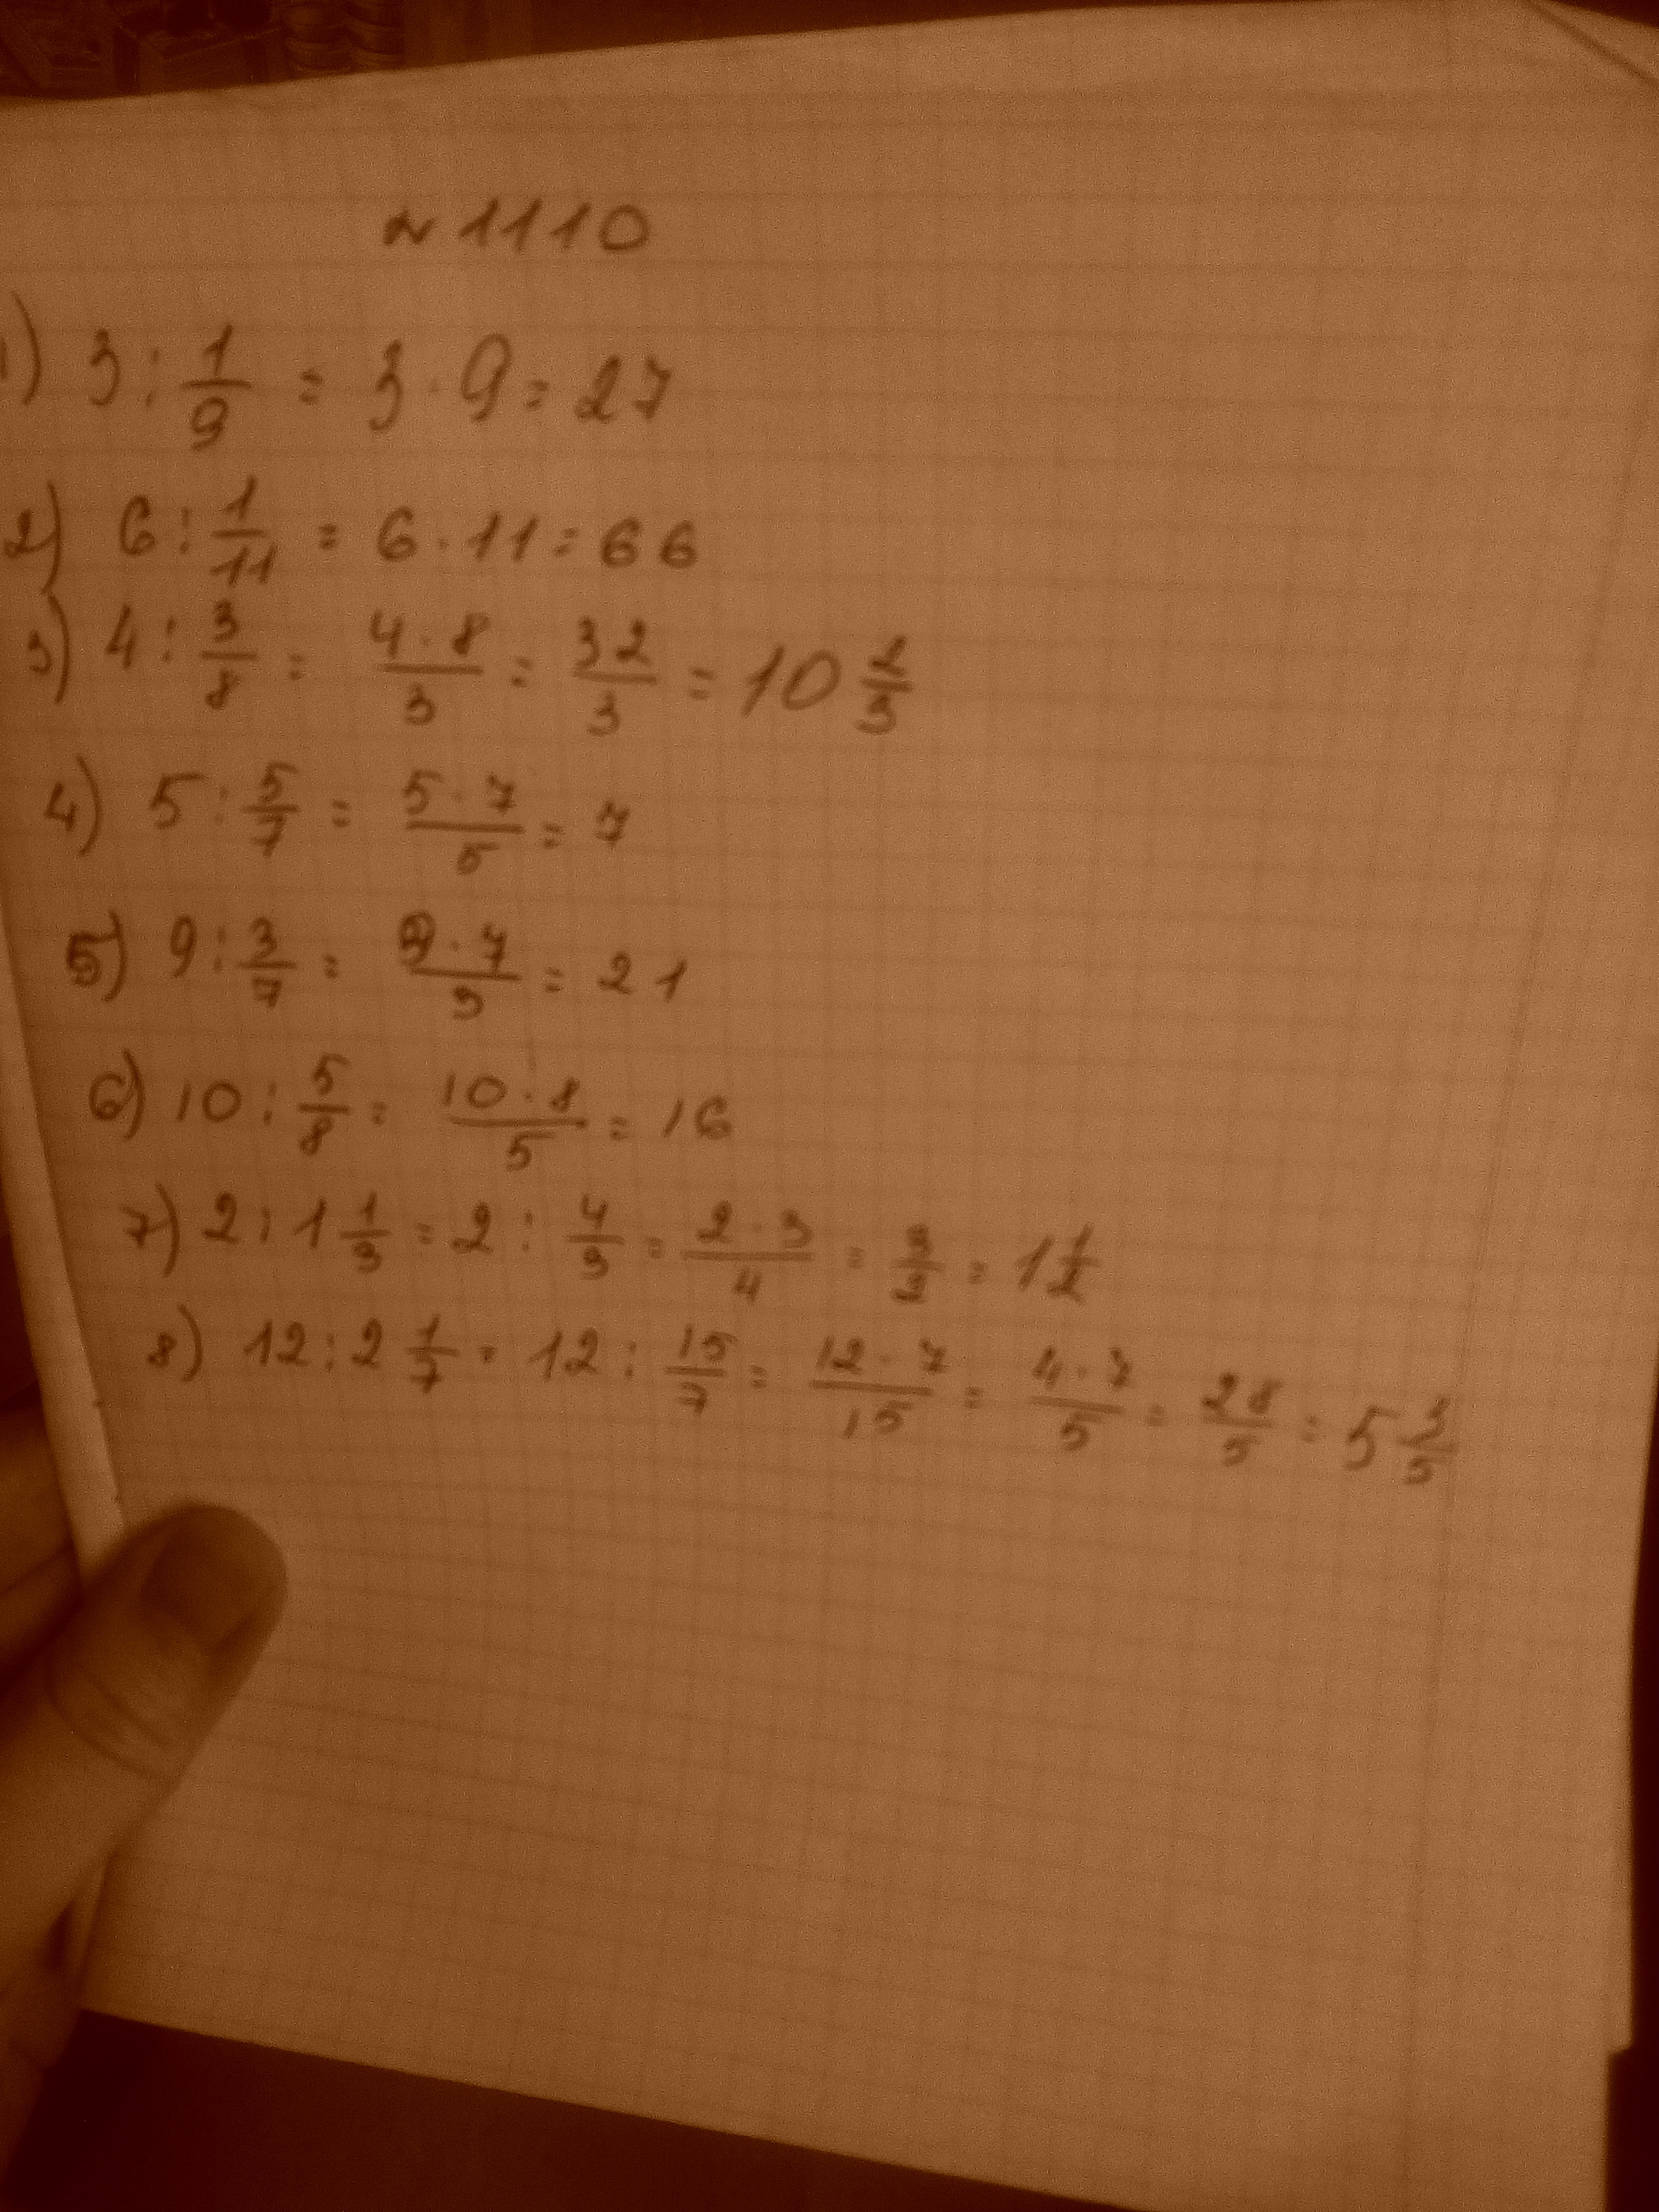 № 1110
1) 3 : 1/9 = 3 · 9 = 27
2) 6 : 1/11 = 6 · 11 = 66
3) 4 : 3/8 = 4 · 8/3 = 32/3 = 10 2/3
4) 5 : 5/7 = 5 · 7/5 = 7
5) 9 : 3/7 = 9 · 7/3 = 21
6) 10 : 5/8 = 10 · 8/5 = 16
7) 2 : 1 1/3 = 2 : 4/3 = 2 · 3/4 = 3/2 = 1 1/2
8) 12 : 2 1/7 = 12 : 15/7 = 12 · 7/15 = 4 · 7/5 = 28/5 = 5 3/5